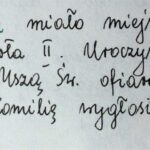 miało miejs
oła II. Uroczy
Mszą Św. ofiar
omilię wygłosi